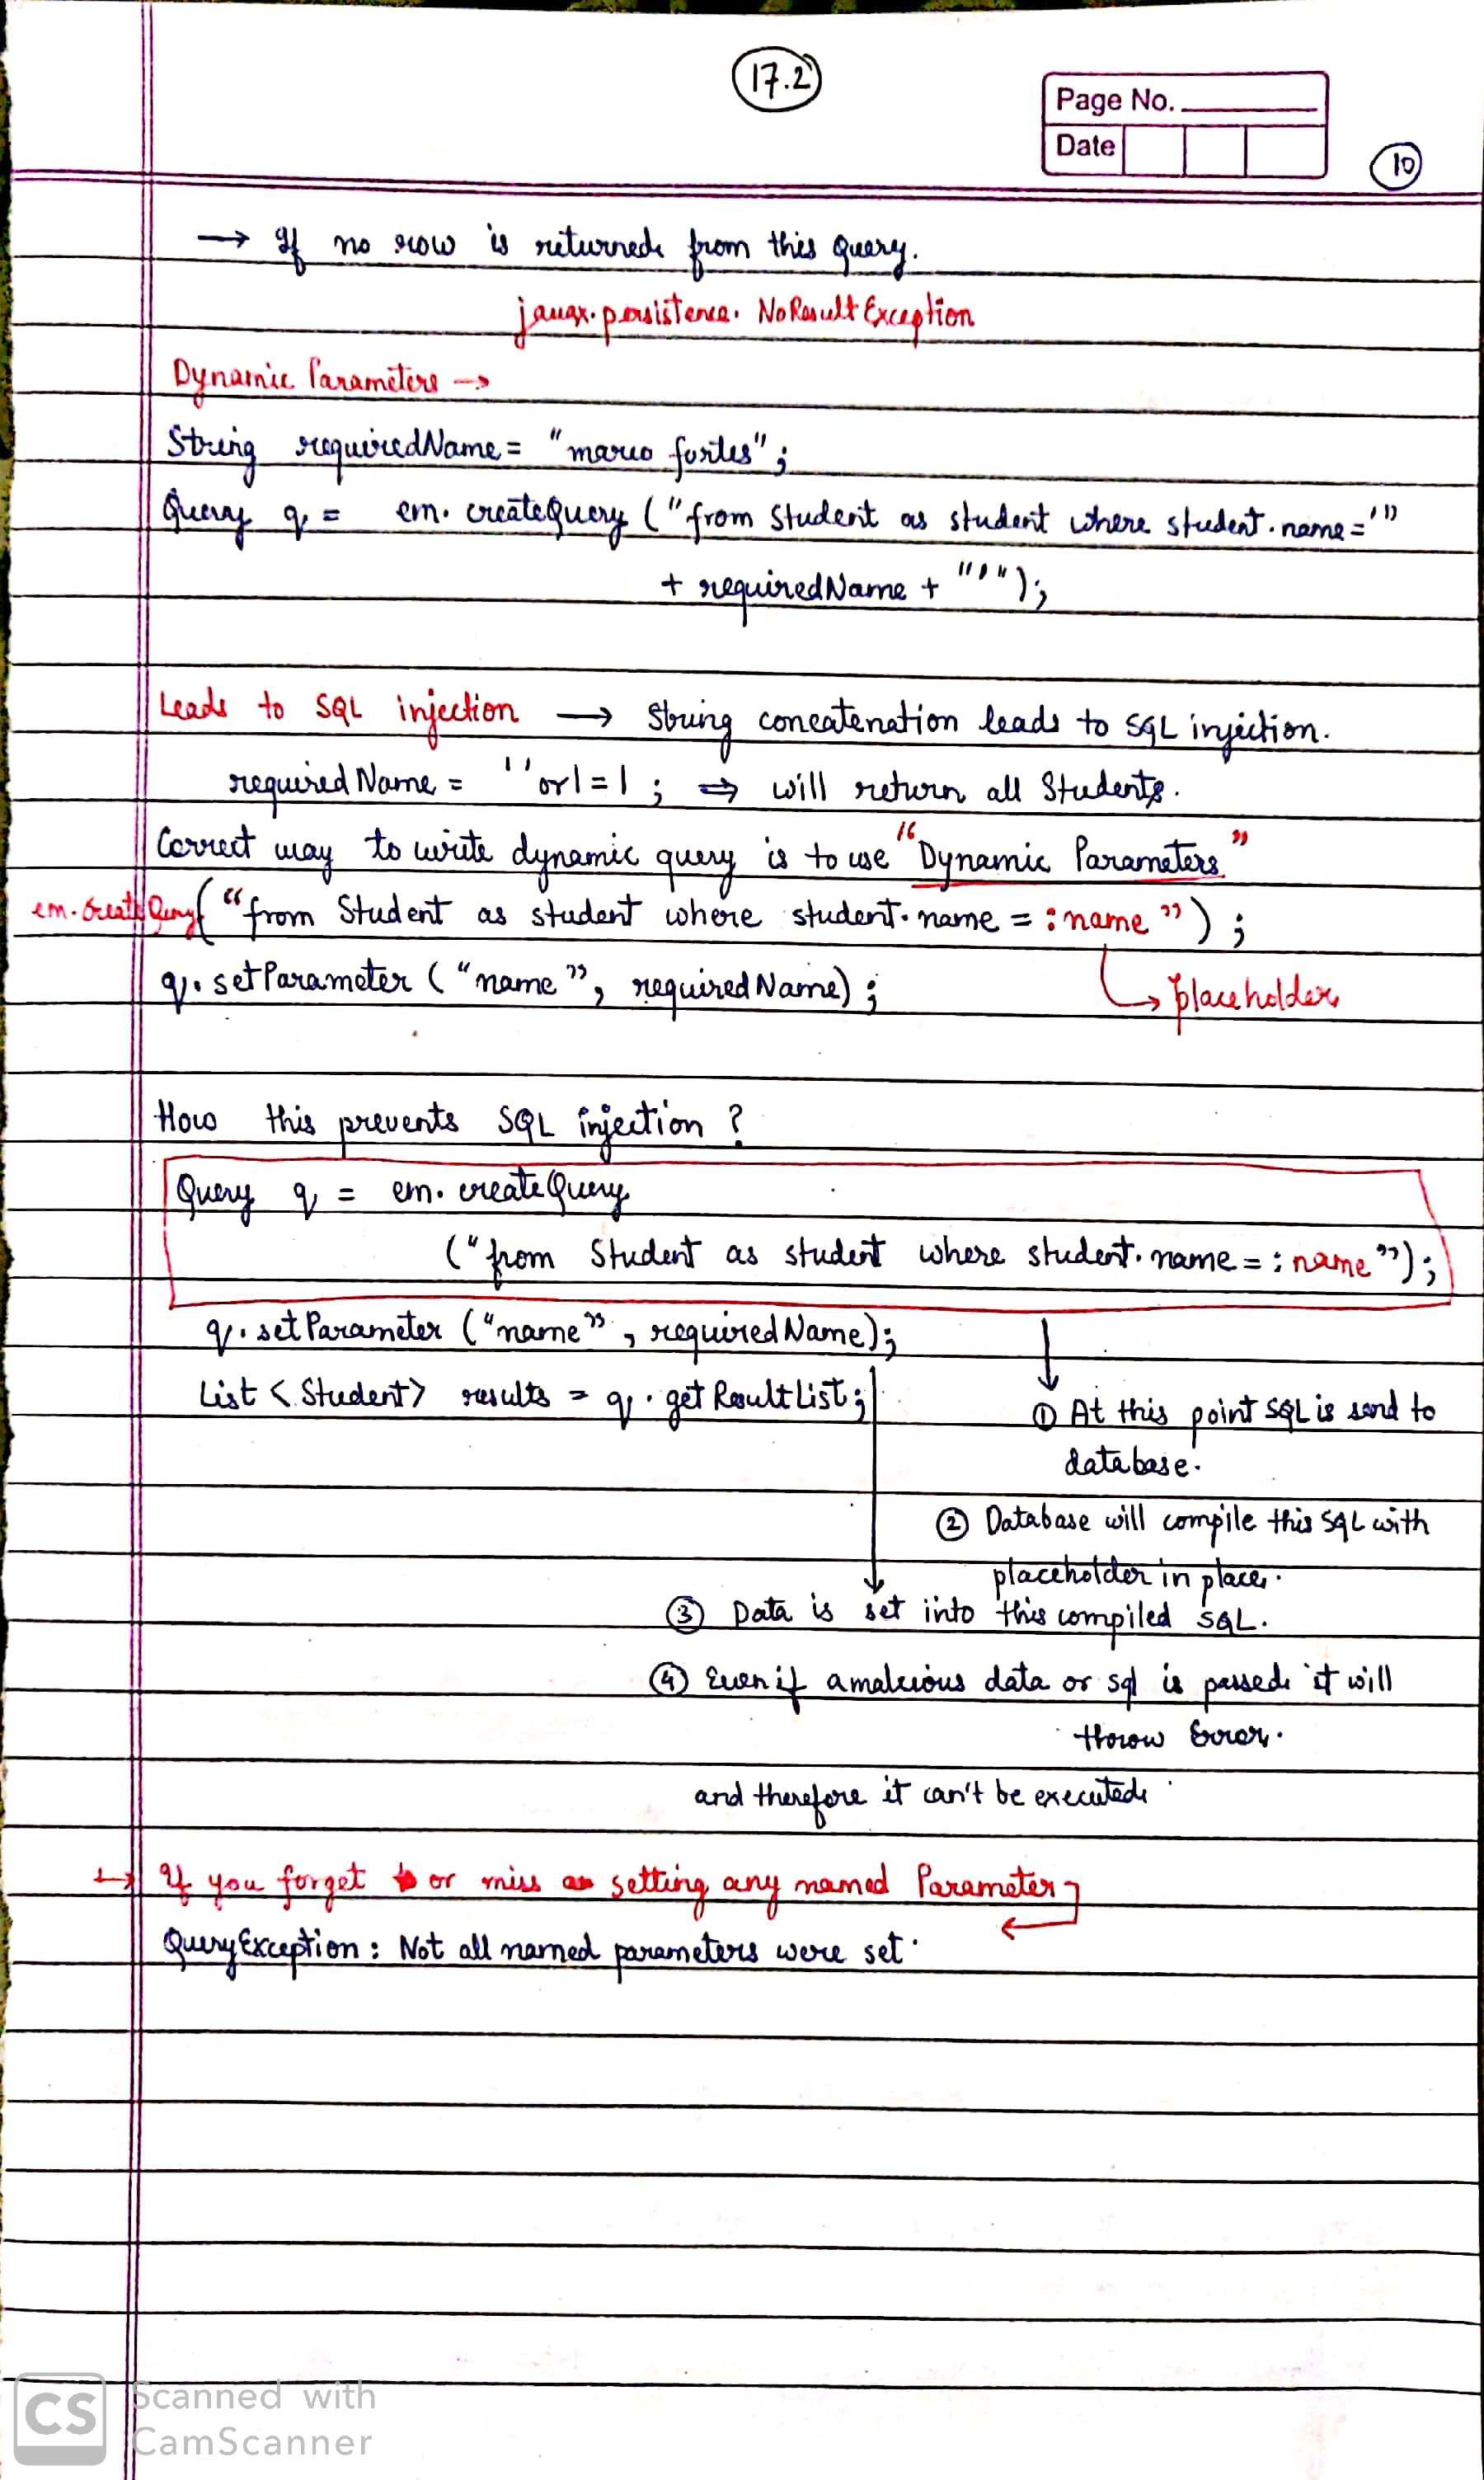 17.2
Page No.
Date
10
→ If no row is returned from this query.
javax.persistence. NoResultException
Dynamic Parameters →
String requiredName = "marco fortes" ;
Query q = em. createQuery ("from Student as student where student.name='"
+ requiredName + "'");
Leads to SQL injection → String concatenation leads to SQL injection.
requiredName = ''or1=1 ; ⇒ will return all Students.
Correct way to write dynamic query is to use "Dynamic Parameters"
em.createQuery( "from Student as student where student.name = :name ") ;
q. setParameter ( "name", requiredName) ;
↳ placeholder
How this prevents SQL injection ?
Query q = em. createQuery
("from Student as student where student.name = :name");
q. setParameter ("name", requiredName);
List < Student> results = q. getResultList;
① At this point SQL is send to
database.
② Database will compile this SQL with
placeholder in place.
③ Data is set into this compiled SQL.
④ Even if a malcious data or sql is passed it will
throw Error.
and therefore it can't be executed
↦ If you forget or miss setting any named Parameter
QueryException : Not all named parameters were set.
CS
Scanned with
CamScanner